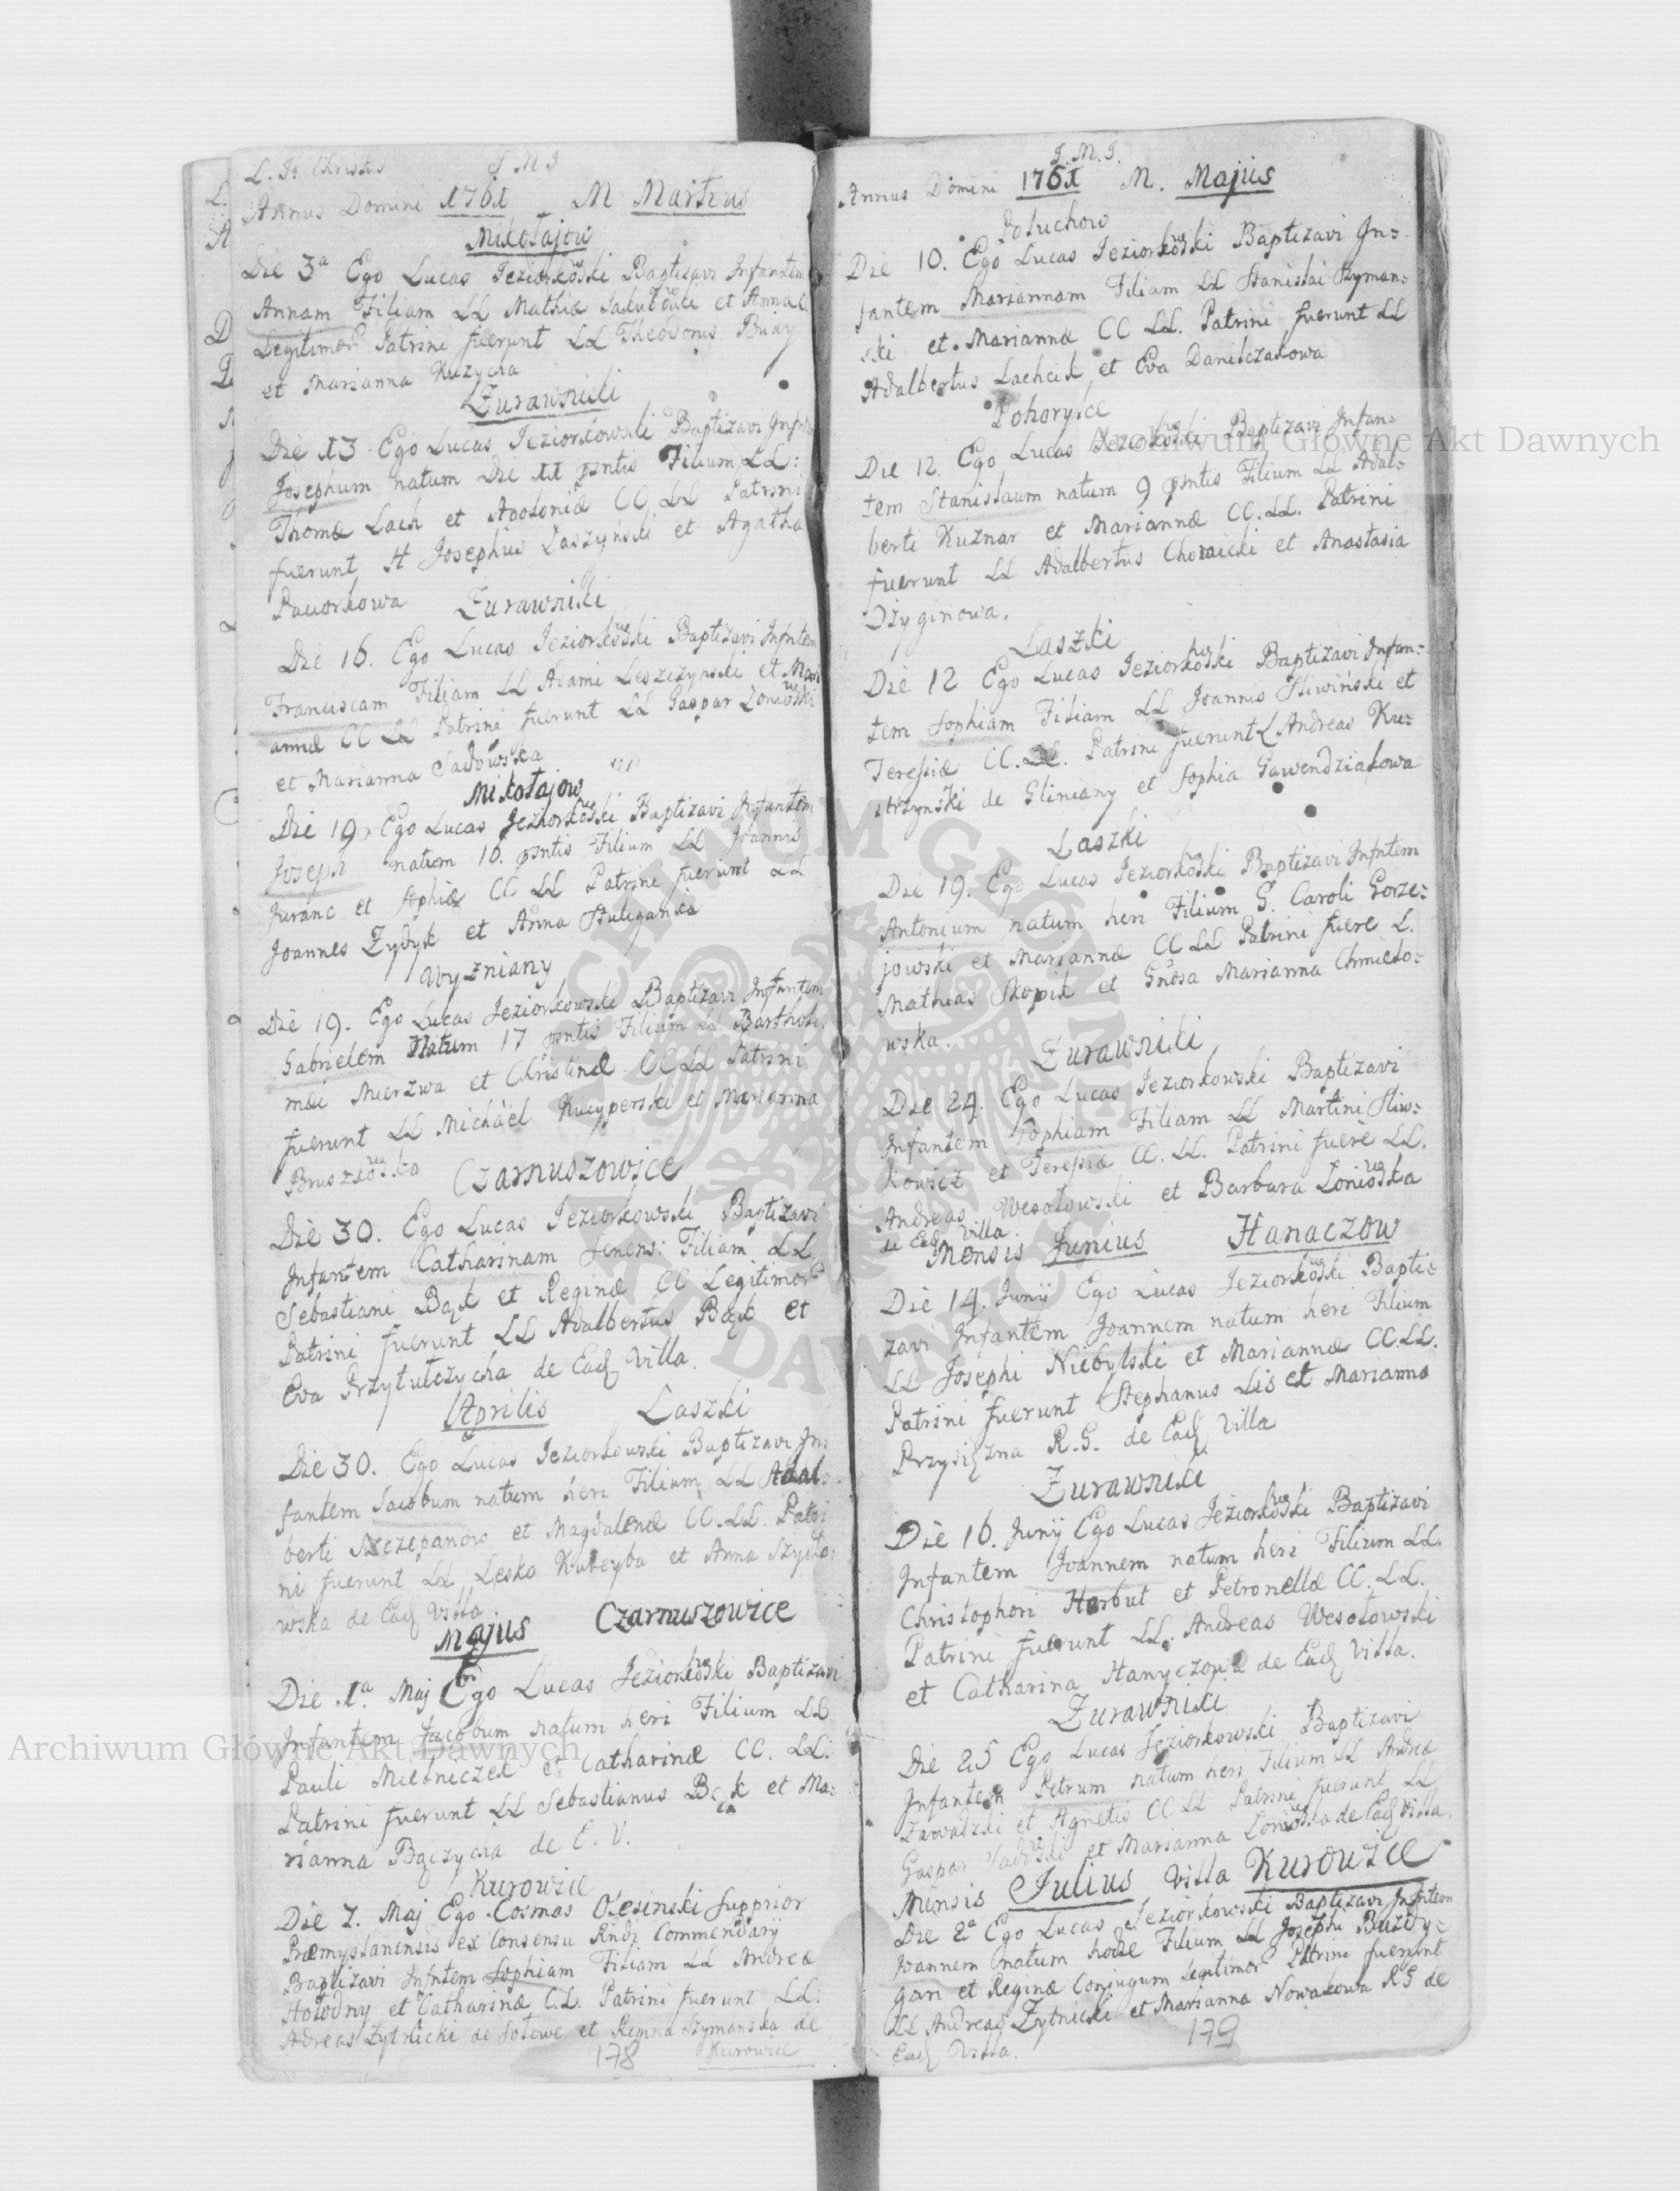 L. Is Christus J M J
Annus Domini 1761 M Martius
Mikołajow
Die 3a Ego Lucas Jeziorkowski Baptizavi Infantem
Annam Filiam LL Mathiæ et Annæ
Legitimor Patrini fuerunt LL Theodorus
et Marianna Kuzycha
Żurawniki
Die 13 Ego Lucas Jeziorkowski Baptizavi
Josephum natum Die 11 psntis Filium LL:
Thomæ Lach et Apoloniæ CC. LL Patrini
fuerunt Josephus Łaszyński et Agatha
Paciorkowa Żurawniki
Die 16. Ego Lucas Jeziorkowski Baptizavi Infntem
Franciscam Filiam LL Adami Leszczynski et Mari
annæ CC LL Patrini fuerunt LL Gaspar Łoniowski
et Marianna Sadowska
Mikołajow
Die 19. Ego Lucas Jeziorkowski Baptizavi Infantem
Joseph natum 16. psntis Filium LL Joannis
Juranc et Sophiæ CC LL Patrini fuerunt LL
Joannes Zydyk et Anna Stuliganka
Wyzniany
Die 19. Ego Lucas Jeziorkowski Baptizavi Infantem
Gabrielem Natum 17 psntis Filium LL Barthol:
mæi Mierzwa et Christinæ CC LL Patrini
fuerunt LL Michäel Kucyperski et Marianna
Bruszkowska Czarnuszowice
Die 30. Ego Lucas Jeziorkowski Baptizavi
Infantem Catharinam Senens: Filiam LL
Sebastiani Bąk et Reginæ CC Legitimor
Patrini fuerunt LL Adalbertus Bąk et
Eva Przytułczycha de Eadq Villa.
Aprilis Laszki
Die 30. Ego Lucas Jeziorkowski Baptizavi In:
fantem Jacobum natum heri Filium LL Adal:
berti Szczepanow et Magdalenæ CC. LL. Patri
ni fuerunt LL Lesko Kubeyba et Anna Szydło:
wska de Eadq Villa
Majus Czarnuszowice
Die 1a. Maj Ego Lucas Jeziorkowski Baptizavi
Infantem Jacobum natum heri Filium LL
Pauli Mielniczek et Catharinæ CC. LL:
Patrini fuerunt LL Sebastianus Bąk et Ma:
rianna Bączycha de E. V.
Kurowice
Die 7. Maj Ego Cosmas Olesinski Supprior
Præmyslanensis ex Consensu Rndi Commendarij
Baptizavi Infntem Sophiam Filiam LL Andreæ
Hołodny et Catharinæ C.L. Patrini fuerunt LL:
Adreas Żytnicki de et Regina Szymanska de
178 Kurowice
J. M. J.
Annus Domini 1761 M. Majus
Połuchow
Die 10. Ego Lucas Jeziorkowski Baptizavi In:
fantem Mariannam Filiam LL Stanislai Szyman:
ski et Mariannæ CC LL. Patrini fuerunt LL
Adalbertus Lachcik et Eva Danilczakowa
Pohorylce
Die 12. Ego Lucas Jeziorkowski Baptizavi Infan:
tem Stanislaum natum 9 psntis Filium LL Adal:
berti Kuznar et Mariannæ CC. LL. Patrini
fuerunt LL Adalbertus Choraicki et Anastasia
Dżyginowa.
Laszki
Die 12 Ego Lucas Jeziorkowski Baptizavi Infan:
tem Sophiam Filiam LL Joannis Sliwiński et
Teresiæ CC. LL. Patrini fuerunt L Andreas Ku:
strzynski de Gliniany et Sophia Gawendziakowa
Laszki
Die 19. Ego Lucas Jeziorkowski Baptizavi Infntem
Antonium natum heri Filium G. Caroli Gorze:
jowski et Mariannæ CC LL Patrini fuere L.
Mathias Skopik et Gnosa Marianna Chmielo:
wska. Żurawniki
Die 24. Ego Lucas Jeziorkowski Baptizavi
Infantem Sophiam Filiam LL Martini Sliw:
kowicz et Teresiæ CC. LL. Patrini fuere LL.
Andreas Wesołowski et Barbara Łoniowska
de Eadq Villa.
Mensis Junius Hanaczow
Die 14. Junii Ego Lucas Jeziorkowski Bapti:
zavi Infantem Joannem natum heri Filium
LL Josephi Niebylski et Mariannæ CC.LL.
Patrini fuerunt Stephanus Lis et Marianna
Przysiężna R.G. de Eadq Villa
Żurawniki
Die 16. Junij Ego Lucas Jeziorkowski Baptizavi
Infantem Joannem natum heri Filium LL.
Christophori Harbut et Petronellæ CC. LL.
Patrini fuerunt LL. Andreas Wesołowski
et Catharina Hanyczowa de Eadq Villa.
Żurawniki
Die 25 Ego Lucas Jeziorkowski Baptizavi
Infantem Petrum natum heri Filium LL Andreæ
Zawadzki et Agnetis CC LL Patrini fuerunt LL
Gaspar Sadowski et Marianna Łoniowska de Eadq Villa.
Mensis Julius Villa Kurowice
Die 2a Ego Lucas Jeziorkowski Baptizavi Infntem
Joannem natum hodie Filium LL Josephi Buzdy:
gan et Reginæ Conjugum Legitimor Patrini fuerunt
LL Andreas Żytnicki et Marianna Nowakowa RG de
Eadq Villa. 179
Archiwum Główne Akt Dawnych
Archiwum Główne Akt Dawnych
ARCHIWUM GŁÓWNE AKT DAWNYCH